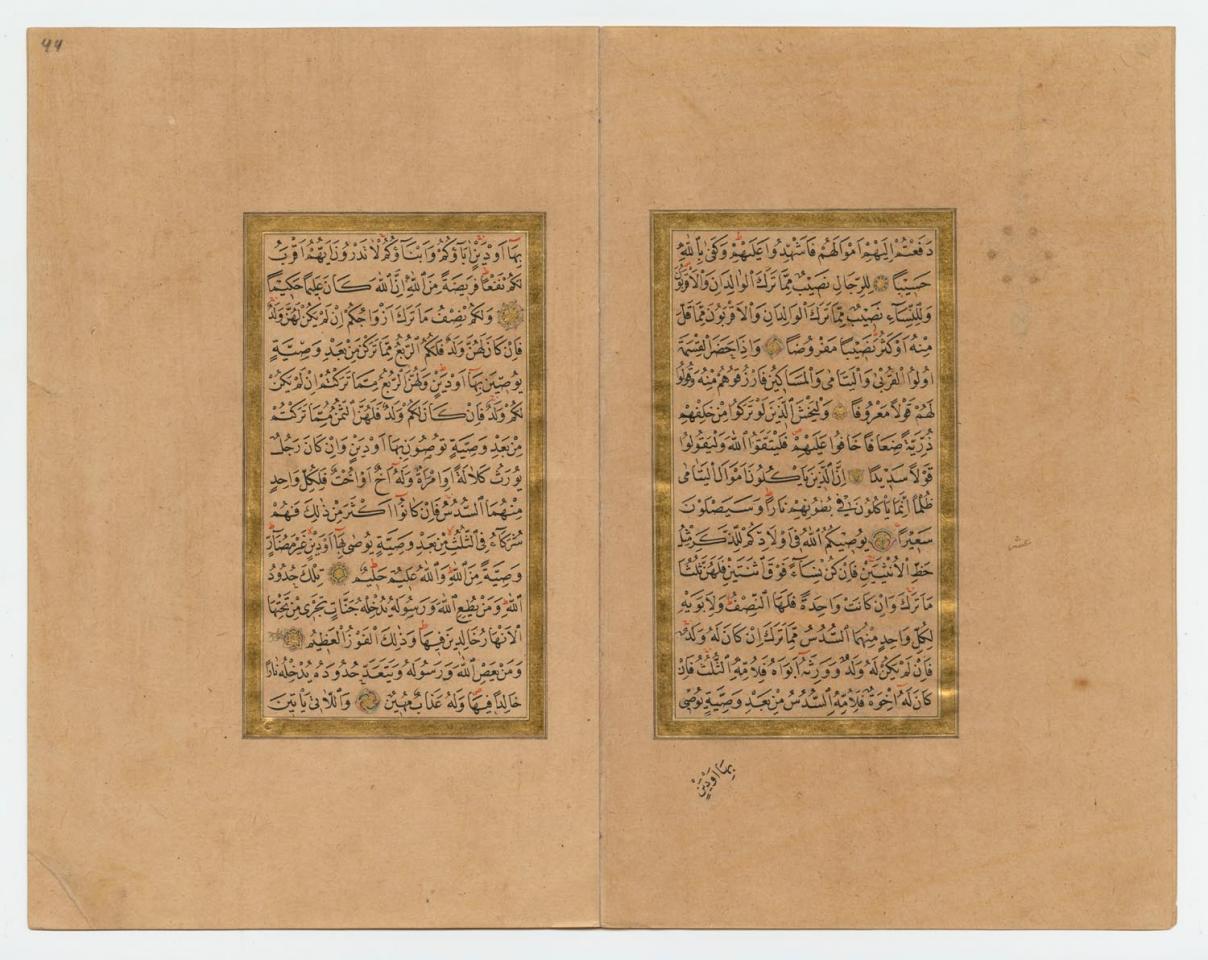 دَفَعْتُمْ اِلَيْهِمْ اَمْوَالَهُمْ فَاَشْهِدُوا عَلَيْهِمْ وَكَفٰى بِاللّٰهِ
حَسِيبًا لِلرِّجَالِ نَصِيبٌ مِمَّا تَرَكَ الْوَالِدَانِ وَالْاَقْرَبُونَ
وَلِلنِّسَاءِ نَصِيبٌ مِمَّا تَرَكَ الْوَالِدَانِ وَالْاَقْرَبُونَ مِمَّا قَلَّ
مِنْهُ اَوْ كَثُرَ نَصِيبًا مَفْرُوضًا وَاِذَا حَضَرَ الْقِسْمَةَ
اُولُوا الْقُرْبٰى وَالْيَتَامٰى وَالْمَسَاكِينُ فَارْزُقُوهُمْ مِنْهُ وَقُولُوا
لَهُمْ قَوْلًا مَعْرُوفًا وَلْيَخْشَ الَّذِينَ لَوْ تَرَكُوا مِنْ خَلْفِهِمْ
ذُرِّيَّةً ضِعَافًا خَافُوا عَلَيْهِمْ فَلْيَتَّقُوا اللّٰهَ وَلْيَقُولُوا
قَوْلًا سَدِيدًا اِنَّ الَّذِينَ يَاْكُلُونَ اَمْوَالَ الْيَتَامٰى
ظُلْمًا اِنَّمَا يَاْكُلُونَ فِي بُطُونِهِمْ نَارًا وَسَيَصْلَوْنَ
سَعِيرًا يُوصِيكُمُ اللّٰهُ فِي اَوْلَادِكُمْ لِلذَّكَرِ مِثْلُ
حَظِّ الْاُنْثَيَيْنِ فَاِنْ كُنَّ نِسَاءً فَوْقَ اثْنَتَيْنِ فَلَهُنَّ ثُلُثَا
مَا تَرَكَ وَاِنْ كَانَتْ وَاحِدَةً فَلَهَا النِّصْفُ وَلِاَبَوَيْهِ
لِكُلِّ وَاحِدٍ مِنْهُمَا السُّدُسُ مِمَّا تَرَكَ اِنْ كَانَ لَهُ وَلَدٌ
فَاِنْ لَمْ يَكُنْ لَهُ وَلَدٌ وَوَرِثَهُ اَبَوَاهُ فَلِاُمِّهِ الثُّلُثُ فَاِنْ
كَانَ لَهُ اِخْوَةٌ فَلِاُمِّهِ السُّدُسُ مِنْ بَعْدِ وَصِيَّةٍ يُوصِي
بِهَا اَوْ دَيْنٍ
بِهَا اَوْ دَيْنٍ اٰبَاؤُكُمْ وَاَبْنَاؤُكُمْ لَا تَدْرُونَ اَيُّهُمْ اَقْرَبُ
لَكُمْ نَفْعًا فَرِيضَةً مِنَ اللّٰهِ اِنَّ اللّٰهَ كَانَ عَلِيمًا حَكِيمًا
وَلَكُمْ نِصْفُ مَا تَرَكَ اَزْوَاجُكُمْ اِنْ لَمْ يَكُنْ لَهُنَّ وَلَدٌ
فَاِنْ كَانَ لَهُنَّ وَلَدٌ فَلَكُمُ الرُّبُعُ مِمَّا تَرَكْنَ مِنْ بَعْدِ وَصِيَّةٍ
يُوصِينَ بِهَا اَوْ دَيْنٍ وَلَهُنَّ الرُّبُعُ مِمَّا تَرَكْتُمْ اِنْ لَمْ يَكُنْ
لَكُمْ وَلَدٌ فَاِنْ كَانَ لَكُمْ وَلَدٌ فَلَهُنَّ الثُّمُنُ مِمَّا تَرَكْتُمْ
مِنْ بَعْدِ وَصِيَّةٍ تُوصُونَ بِهَا اَوْ دَيْنٍ وَاِنْ كَانَ رَجُلٌ
يُورَثُ كَلَالَةً اَوِ امْرَاَةٌ وَلَهُ اَخٌ اَوْ اُخْتٌ فَلِكُلِّ وَاحِدٍ
مِنْهُمَا السُّدُسُ فَاِنْ كَانُوا اَكْثَرَ مِنْ ذٰلِكَ فَهُمْ
شُرَكَاءُ فِي الثُّلُثِ مِنْ بَعْدِ وَصِيَّةٍ يُوصٰى بِهَا اَوْ دَيْنٍ غَيْرَ مُضَارٍّ
وَصِيَّةً مِنَ اللّٰهِ وَاللّٰهُ عَلِيمٌ حَلِيمٌ تِلْكَ حُدُودُ
اللّٰهِ وَمَنْ يُطِعِ اللّٰهَ وَرَسُولَهُ يُدْخِلْهُ جَنَّاتٍ تَجْرِي مِنْ تَحْتِهَا
الْاَنْهَارُ خَالِدِينَ فِيهَا وَذٰلِكَ الْفَوْزُ الْعَظِيمُ
وَمَنْ يَعْصِ اللّٰهَ وَرَسُولَهُ وَيَتَعَدَّ حُدُودَهُ يُدْخِلْهُ نَارًا
خَالِدًا فِيهَا وَلَهُ عَذَابٌ مُهِينٌ وَاللَّاتِي يَاْتِينَ